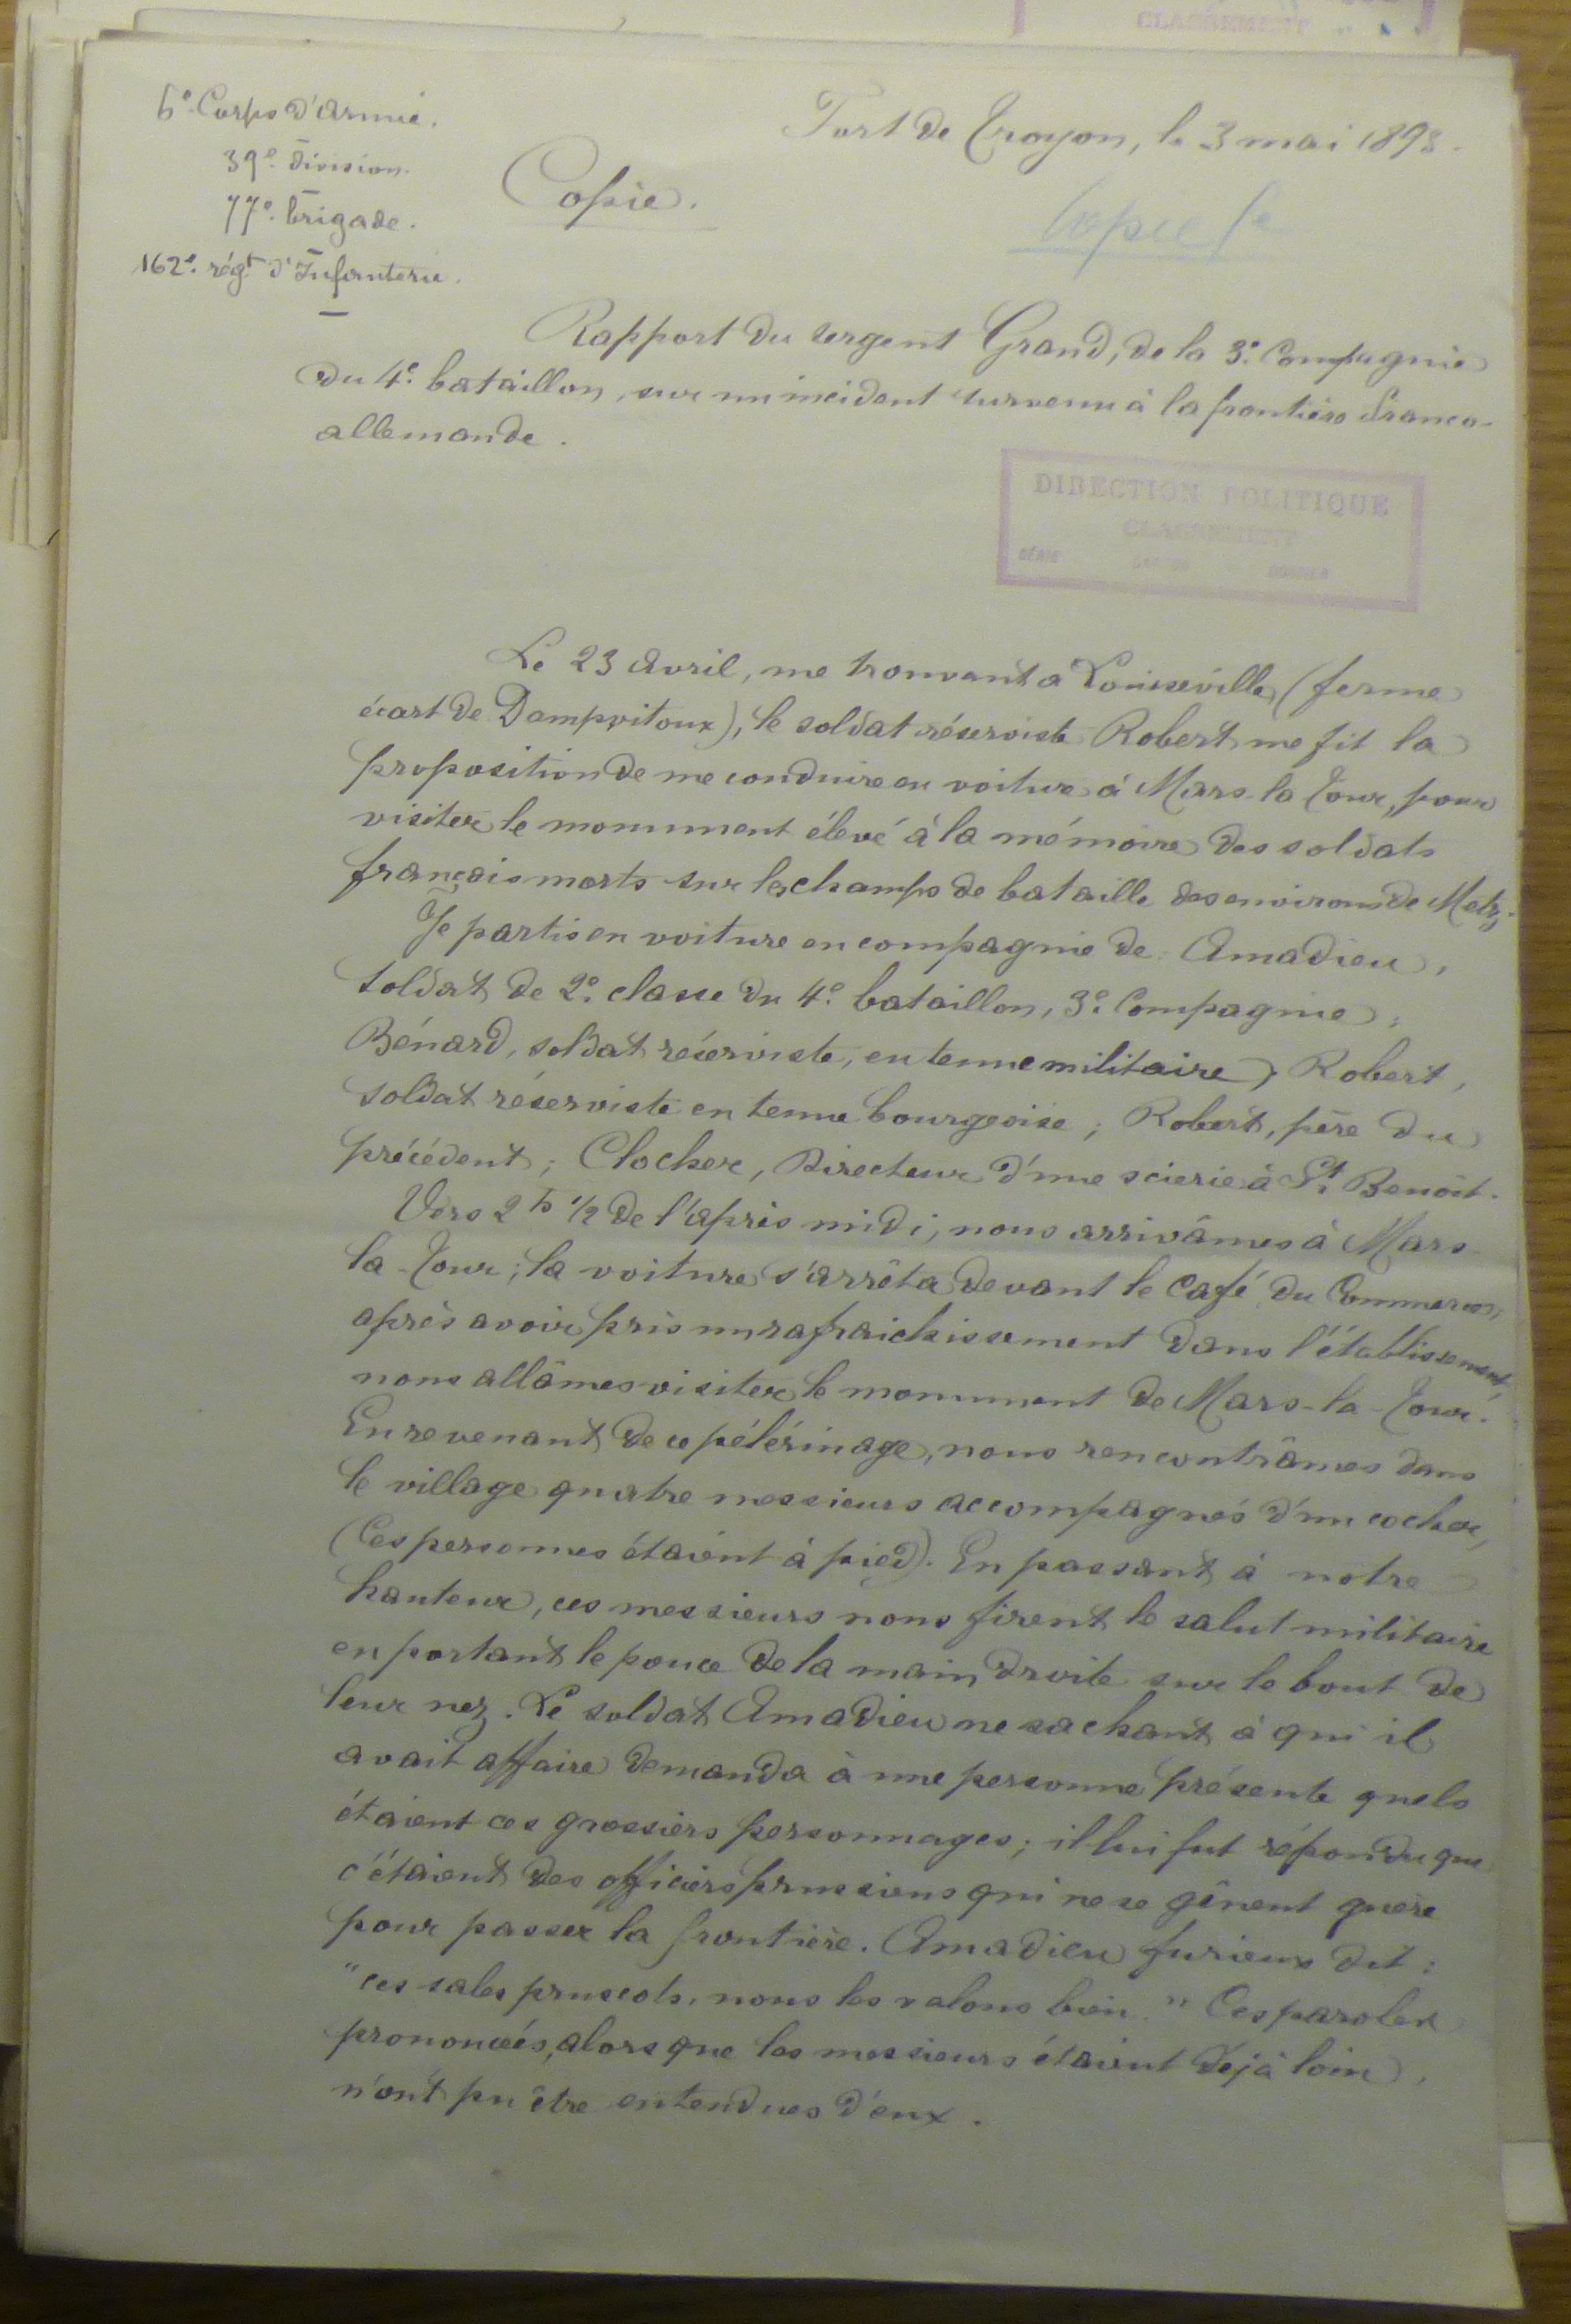 CLASSEMENT
6e Corps d'Armée.
39e. Division.
77e. brigade.
162e. régt d'Infanterie.
Fort de Troyon, le 3 mai 1893.
Copie.
Rapport du sergent Grand, de la 3e. Compagnie
du 4e. bataillon, sur un incident survenu à la frontière franco-
allemande.
DIRECTION POLITIQUE
CLASSEMENT
SÉRIE CARTON DOSSIER
Le 23 Avril, me trouvant à Louiseville (ferme
écart de Dampvitoux), le soldat réserviste Robert me fit la
proposition de me conduire en voiture à Mars-la-Tour, pour
visiter le monument élevé à la mémoire des soldats
français morts sur les champs de bataille des environs de Metz;
Je partis en voiture en compagnie de Amadieu,
soldat de 2e. classe du 4e. bataillon, 3e. Compagnie;
Bénard, soldat réserviste, en tenue militaire; Robert,
soldat réserviste en tenue bourgeoise; Robert, père du
précédent; Clocher, Directeur d'une scierie à St. Benoit.
Vers 2 h 1/2 de l'après midi, nous arrivâmes à Mars-
la-Tour; la voiture s'arrêta devant le Café du Commerce;
après avoir pris un rafraichissement dans l'établissement,
nous allâmes visiter le monument de Mars-la-Tour.
En revenant de ce pélérinage, nous rencontrâmes dans
le village quatre messieurs accompagnés d'un cocher,
(Ces personnes étaient à pied). En passant à notre
hauteur, ces messieurs nous firent le salut militaire
en portant le pouce de la main droite sur le bout de
leur nez. Le soldat Amadieu ne sachant à qui il
avait affaire demanda à une personne présente quels
étaient ces grossiers personnages; il lui fut répondu que
c'étaient des officiers prussiens qui ne se gênent guère
pour passer la frontière. Amadieu furieux dit:
"ces sales pruscots, nous les valons bien." Ces paroles
prononcées, alors que les messieurs étaient déjà loin,
n'ont pu être entendues d'eux.